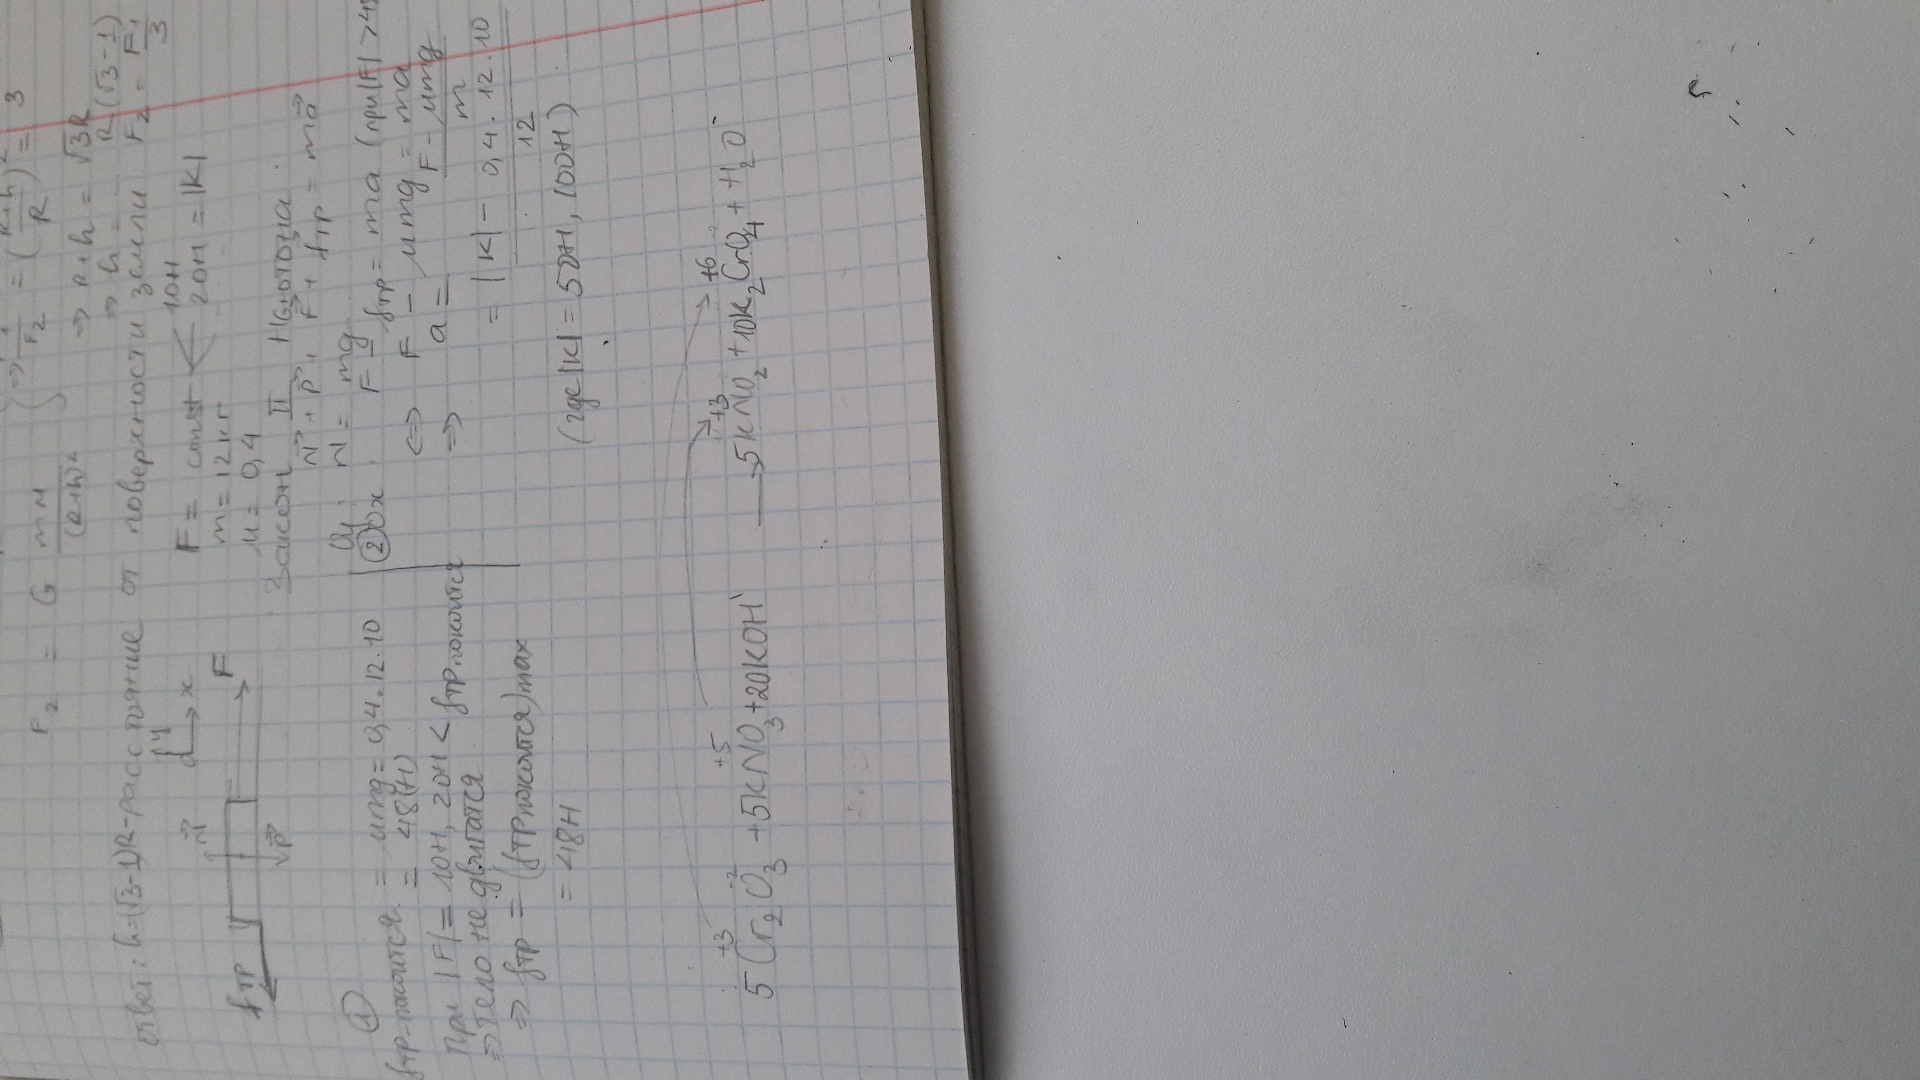 F₂ = G mM/(R+h)²
⇒ F₁/F₂ = ((R+h)/R)² = 3
⇒ R+h = √3R
⇒ h = R(√3-1)
ответ: h=(√3-1)R - расстояние от поверхности земли F₂ = F₁/3
y x
N F fтр P
F = const 10Н
20Н = |K|
m = 12 кг
μ = 0,4
Закон II Ньютона:
N + P + F + fтр = ma
① Oy: N = mg
fтр-покоится = μmg = 0,4·12·10
= 48(Н)
При |F| = 10Н, 20Н < fтр покоится
⇒ тело не двигатся
⇒ fтр = (fтр покоится)max
= 48Н
② Ox F - fтр = ma (при |F| > 48
⇔ F - μmg = ma
⇒ a = (F - μmg)/m
= (|K| - 0,4·12·10)/12
(где |K| = 50Н, 100Н)
+3 -2 +5 +3 +6
5Cr₂O₃ + 5KNO₃ + 20KOH → 5KNO₂ + 10K₂CrO₄ + H₂O